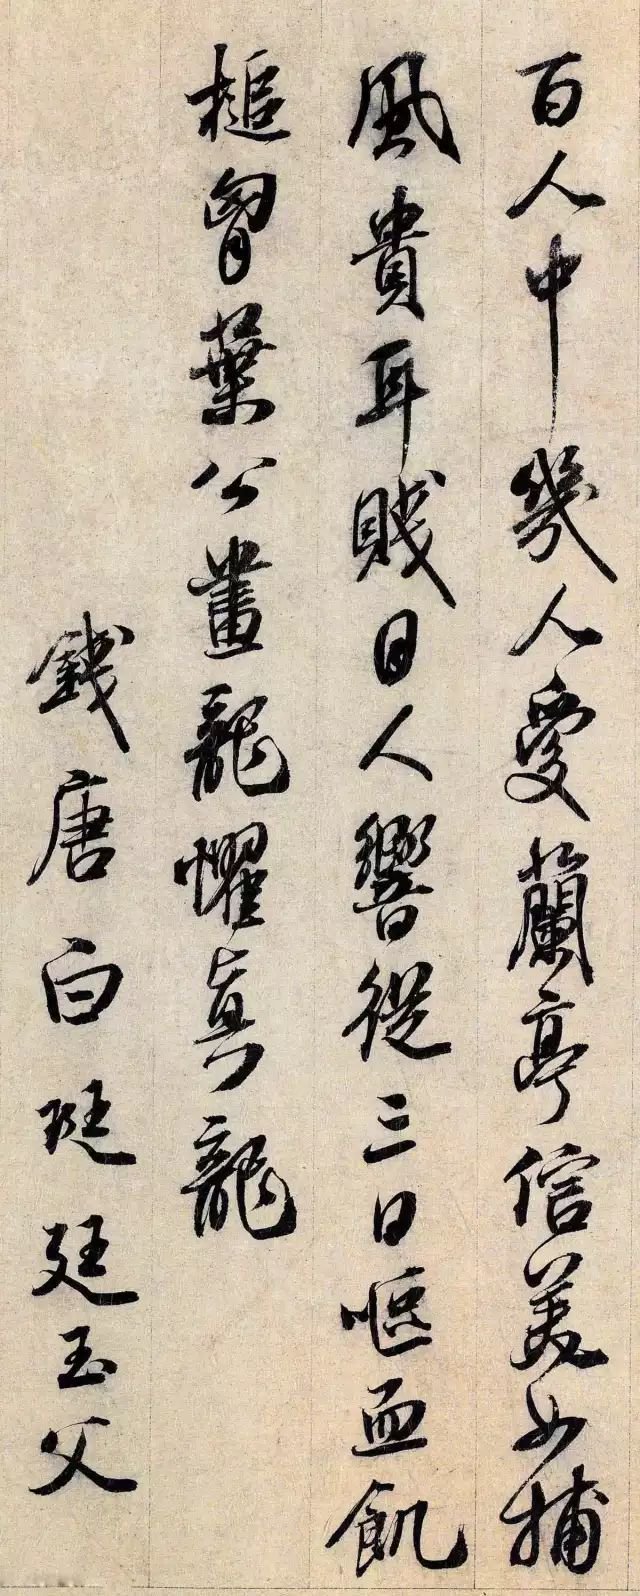 百人中幾人愛蘭亭信美如捕
風貴耳賤目人響從三日嘔血飢
槌胷葉公畫龍懼真龍
錢唐白珽廷玉父